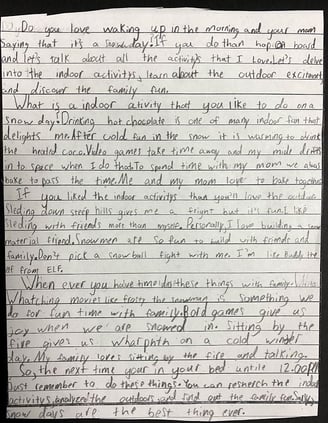 Do you love waking up in the morning and your mom
Saying that it's a snowday? If you do than hop on board
and let's talk about all the activitys that I love. Let's delve
into the indoor activitys, learn about the outdoor excitment
and discover the family fun.
What is a indoor ativity that you like to do on a
snow day? Drinking hot chocolate is one of many indoor fun that
delights me. After cold fun in the snow it is warming to drink
the heated coco. Video games take time away and my mide drifts
in to space when I do that. To spend time with my mom we always
bake to pass the time. Me and my mom love to bake together
If you liked the indoor activitys than you'll love the outdoor
Sleding down steep hills gives me a fright but it's fun. I like
sleding with friends more than myself. Personally, I love building a snow
material friend. Snowmen are so fun to build with friends and
family. Don't pick a snowball fight with me. I'm like Buddy the
elf from ELF.
When ever you have time do these things with family.
Whatching movies like frosty the snowman is something we
do for fun time with family. Bord games give us
joy when we are snowed in. Sitting by the
fire gives us wharmth on a cold winder
day. My family loves sitting by the fire and talking.
So, the next time your in your bed until 12:00PM
Just remember to do these things. You can reserch the indoor
activitys, the outdoors and find out the family fun.
snow days are the best thing ever.